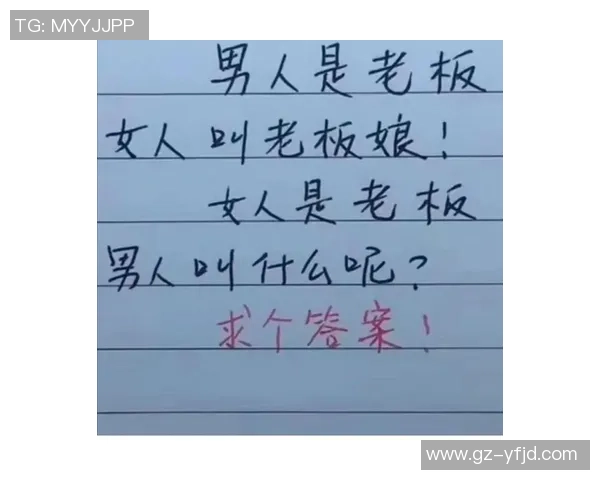 TG: MYYJJPP
男人是老板
女人叫老板娘！
女人是老板
男人叫什么呢？
求个答案！
www.gz-yfjd.com